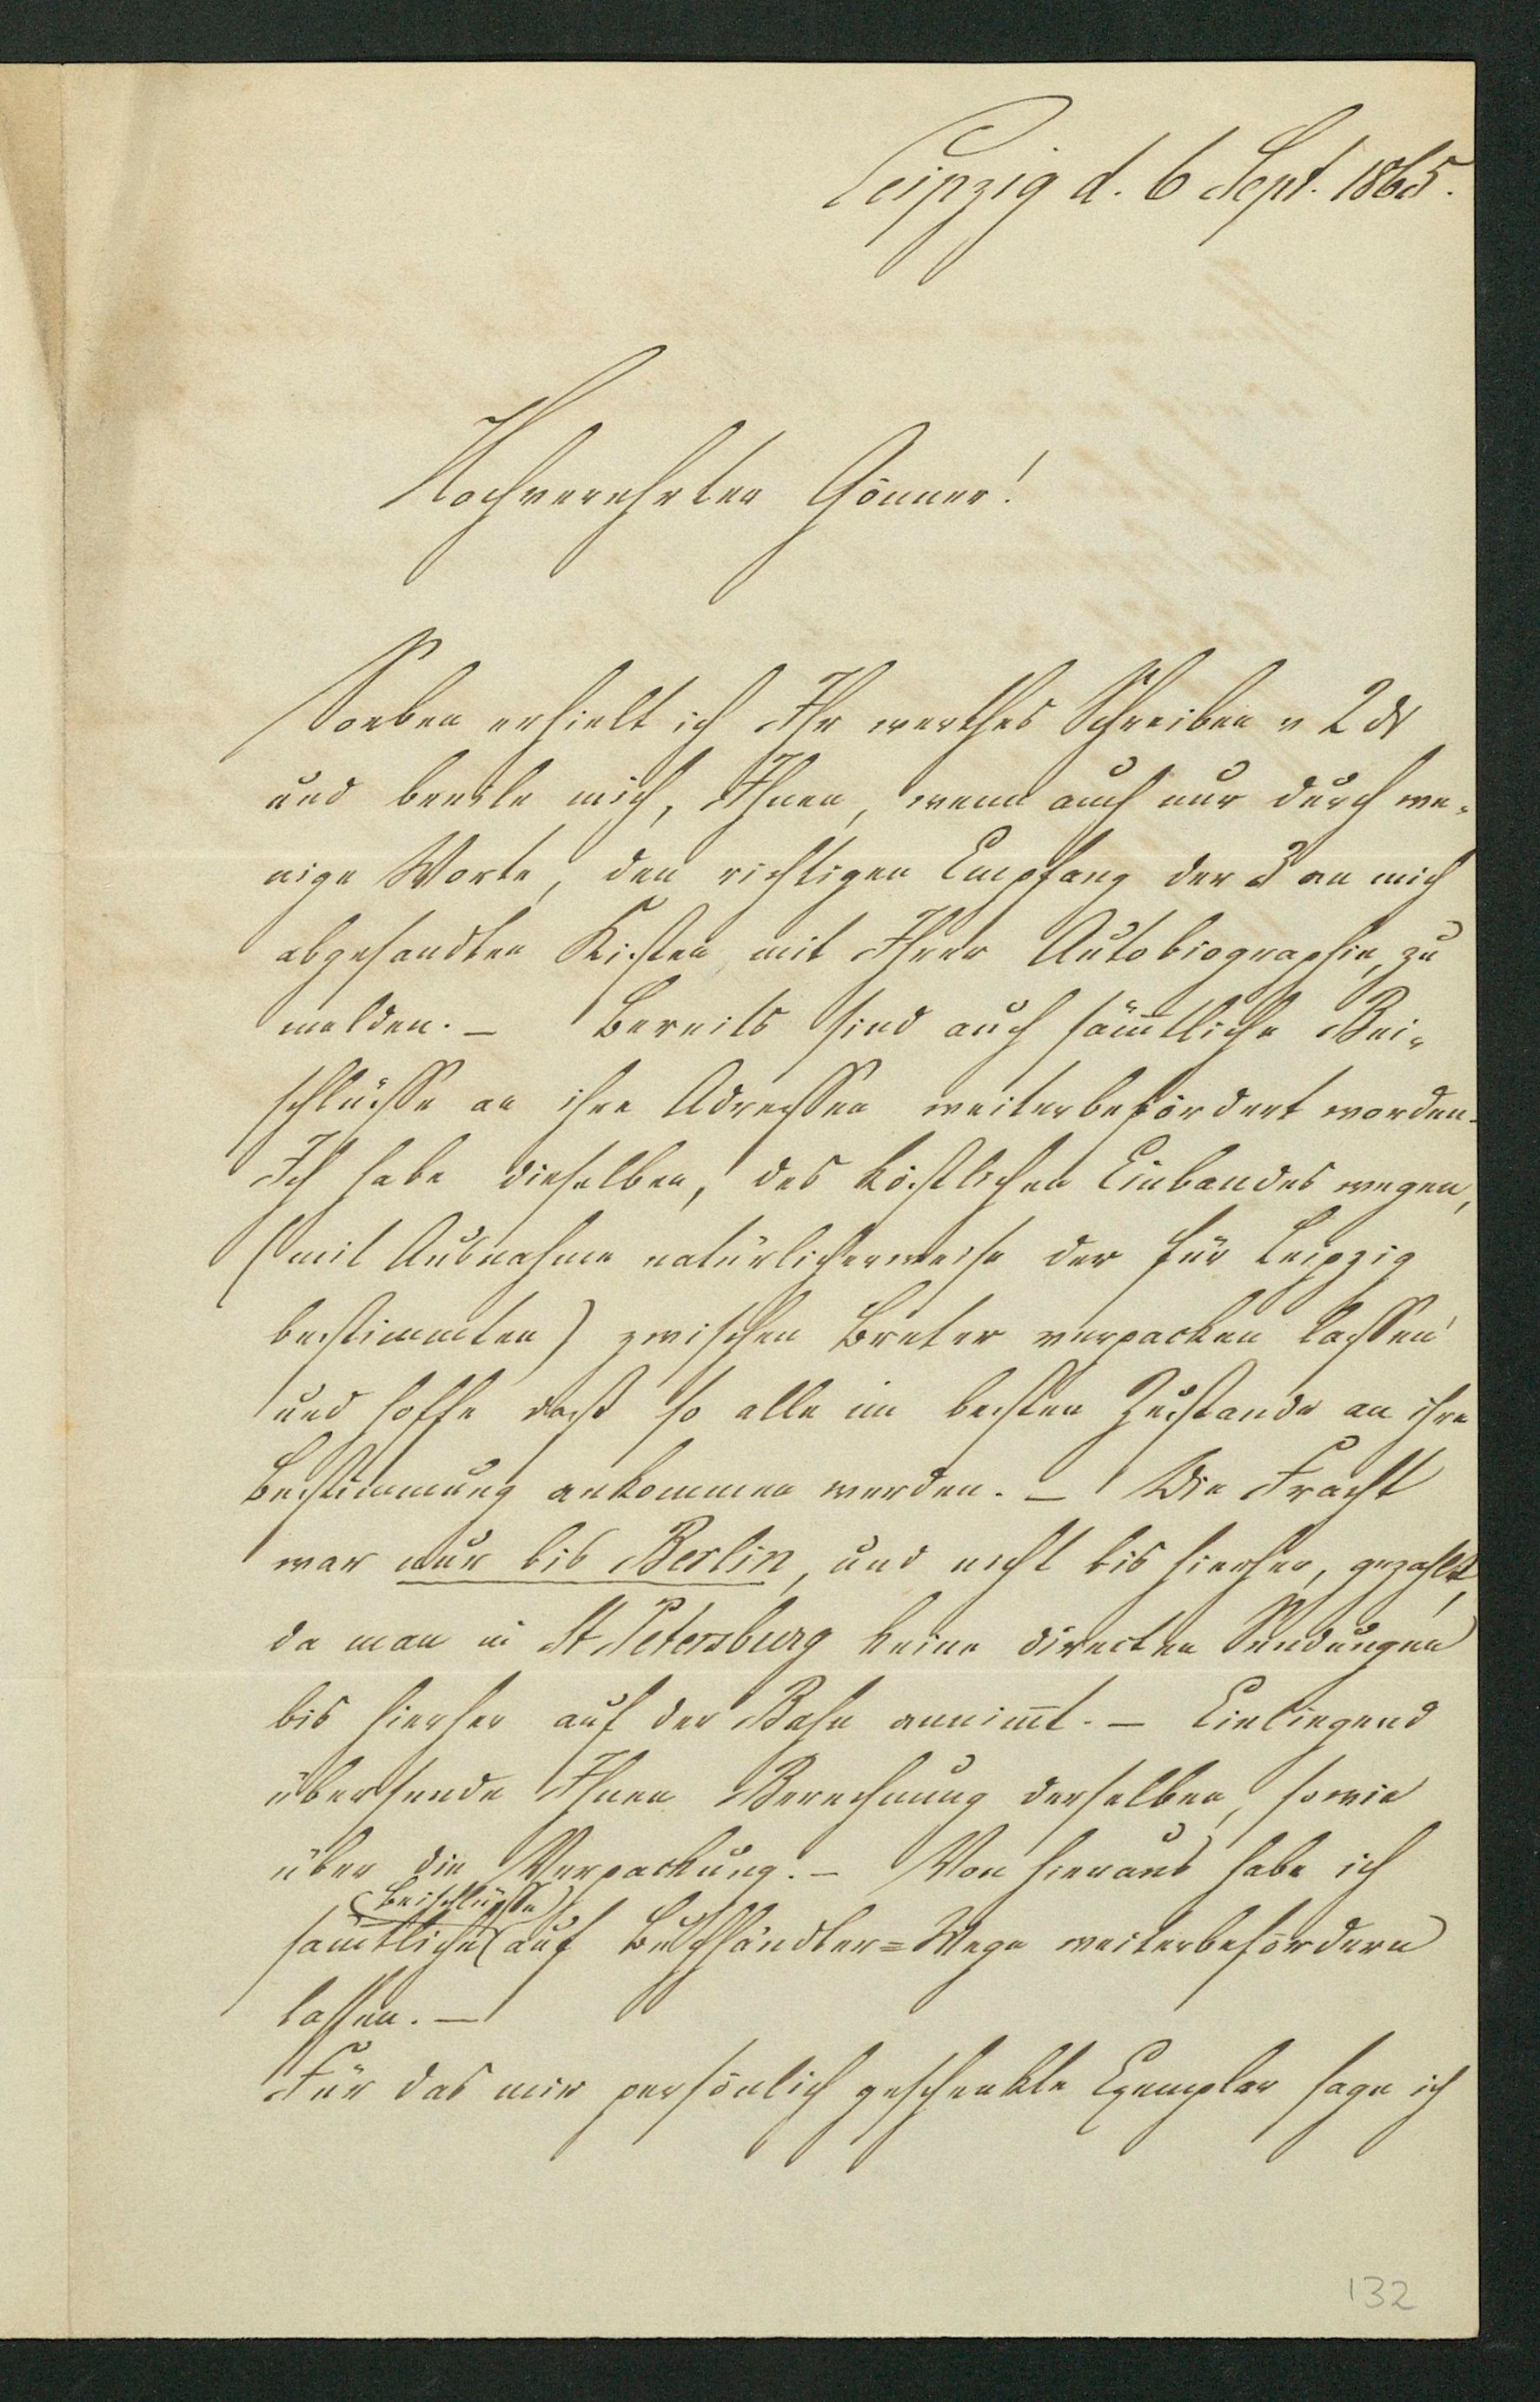 Leipzig d. 6 Sept. 1865.
Hochverehrter Gönner!
Soeben erhielt ich Ihr werthes Schreiben v 2 ds
und beeile mich, Ihnen, wenn auch nur durch we-
nige Worte, den richtigen Empfang der 3 an mich
abgesandten Kisten mit Ihrer Autobiographie, zu
melden. – Bereits sind auch säm̅tliche Bei-
schlüsse an ihre Adressen weiterbefördert worden.
Ich habe dieselben, des köstlichen Einbandes wegen,
(mit Ausnahme natürlicherweise der für Leipzig
bestimmten) zwischen Breter verpacken lassen
und hoffe dass so alle im besten Zustande an ihre
Bestimmung ankommen werden. – Die Fracht
war nur bis Berlin, und nicht bis hierher, gezahlt,
da man in St Petersburg keine directen Sendungen
bis hierher auf der Bahn annim̅t. – Einliegend
übersende Ihnen Berechnung derselben, sowie
über die Verpackung. – Von hieraus habe ich
Beischlüsse
säm̅tliche auf Buchhändler=Wege weiterbefördern
lassen. –
Für das mir persönlich geschenkte Exemplar sage ich
132